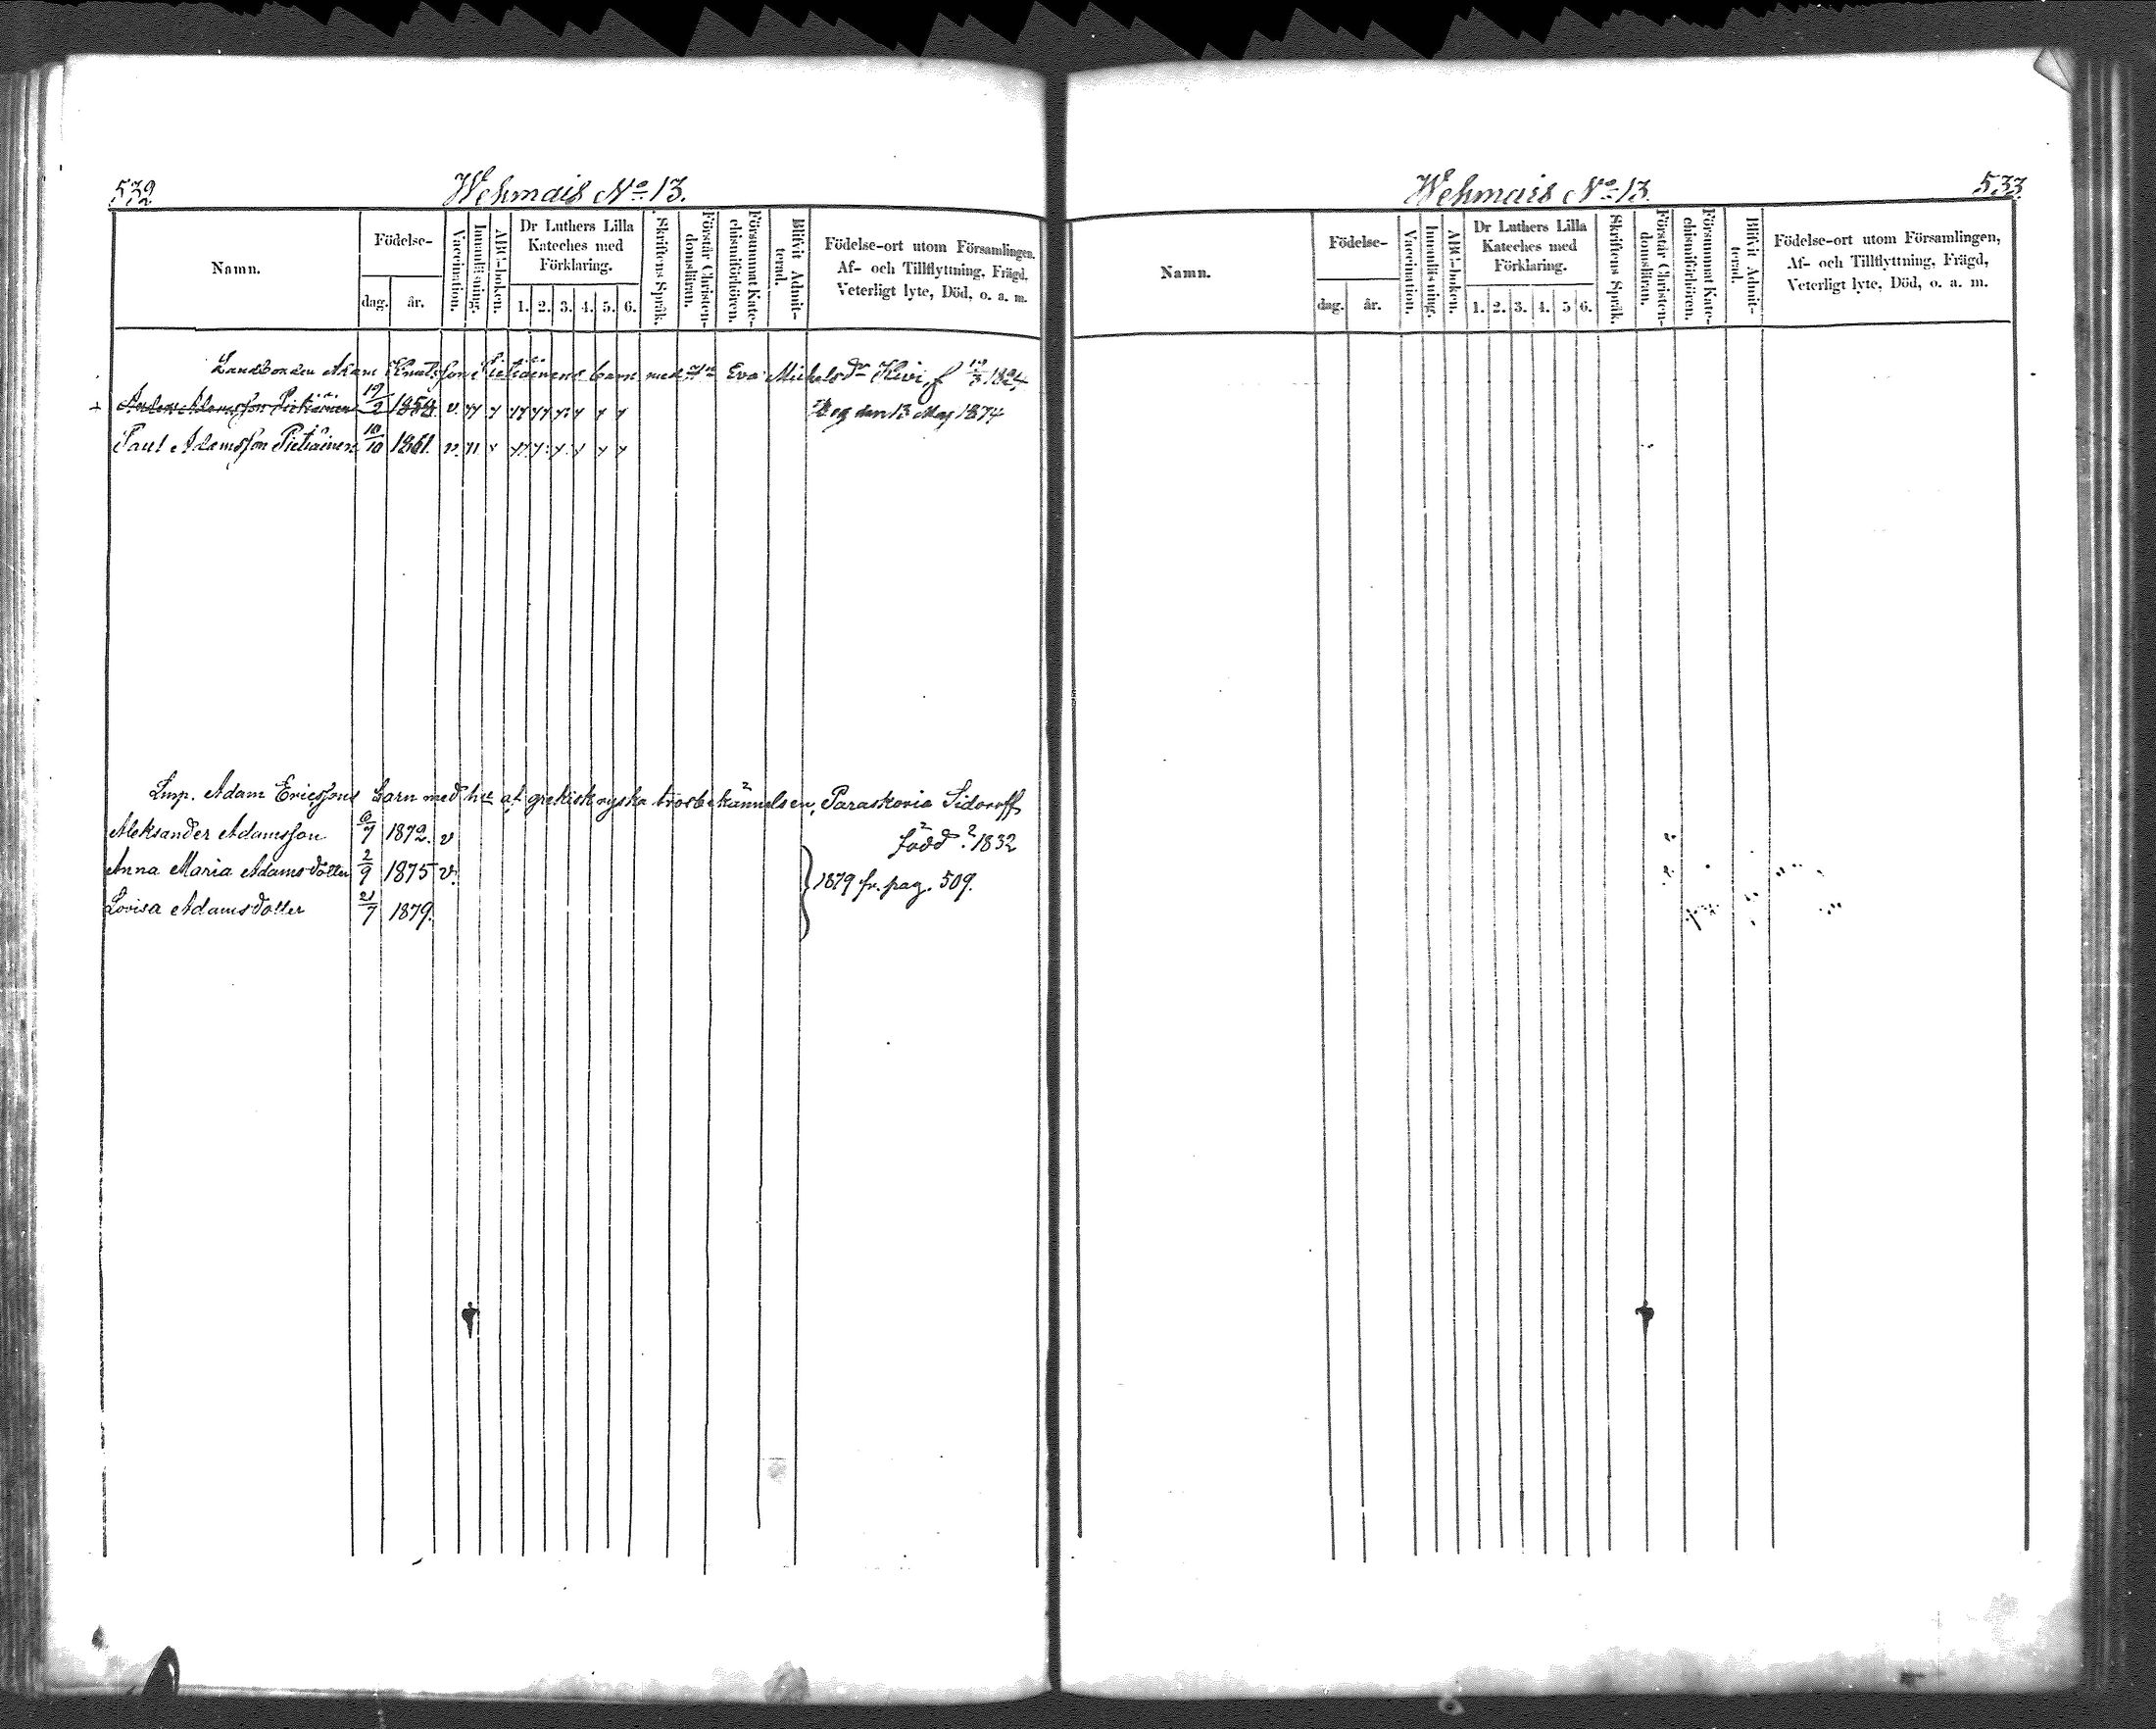 532
Wehmais No 13.
Namn.
Födelse-
dag.
år.
Vaccination.
Innanläsning.
ABC-boken.
Dr Luthers Lilla
Kateches med
Förklaring.
1. 2. 3. 4. 5. 6.
Skriftens Språk.
Förstår Christen-
domsläran.
Försummat Kate-
chismiförhören.
Blifvit Admit-
terad.
Födelse-ort utom Församlingen.
Af- och Tillflyttning, Frägd,
Veterligt lyte, Död, o. a. m.
Landbonden Adam Pietiäinens barn med Eva Michelsdr Kiwi, f 1824
Adamsson Pietiäinen 19/2 1858. v.
den 13 Maj 1874
Paul Adamsson Pietiäinen 10/10 1861. v.
Insp. Adam Ericssons barn med af grekisk ryska trosbekännelsen, Paraskovia Sidoroff
född ? 1832
Aleksander Adamsson 1872. v
Anna Maria Adamsdotter 2/9 1875 v.
Lovisa Adamsdotter 21/7 1879.
1879 fr. pag. 509.
Wehmais No 13.
533
Namn.
Födelse-
dag.
år.
Vaccination.
Innanläsning.
ABC-boken.
Dr Luthers Lilla
Kateches med
Förklaring.
1. 2. 3. 4. 5 6.
Skriftens Språk.
Förstår Christen-
domsläran.
Försummat Kate-
chismiförhören.
Blifvit Admit-
terad.
Födelse-ort utom Församlingen,
Af- och Tillflyttning, Frägd,
Veterligt lyte, Död, o. a. m.